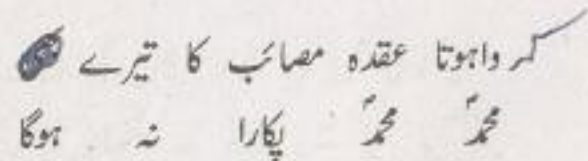 گر واہوتا عقدہ مصائب کا تیرے
محمدؐ محمدؐ پکارا نہ ہوگا